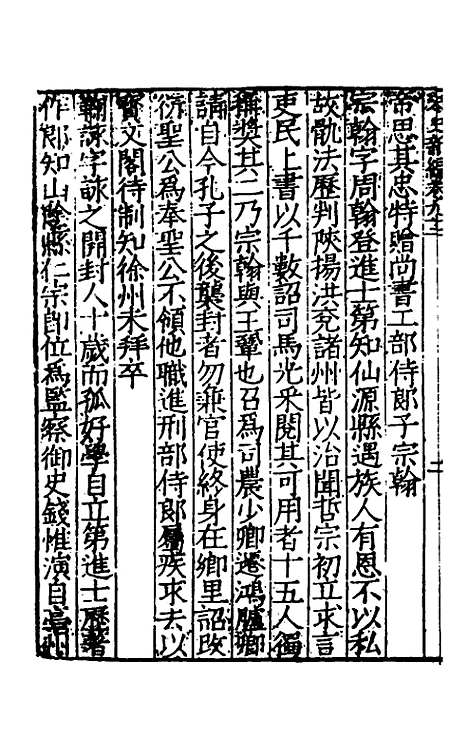 宋史新編卷九十二
帝思其忠特贈尚書工部侍郎子宗翰
宗翰字周翰登進士第知仙源縣遇族人有恩不以私
故骩法歷判陝揚洪兗諸州皆以治聞哲宗初立求言
吏民上書以千數詔司馬光采閱其可用者十五人獨
稱奬其二乃宗翰與王鞏也召爲司農少卿遷鴻臚卿
請自今孔子之後襲封者勿兼官使終身在鄉里詔改
衍聖公爲奉聖公不領他職進刑部侍郎屬疾求去以
寳文閣待制知徐州未拜卒
鞠詠字詠之開封人十歲而孤好學自立第進士歷著
作郎知山陰縣仁宗即位爲監察御史錢惟演自亳州